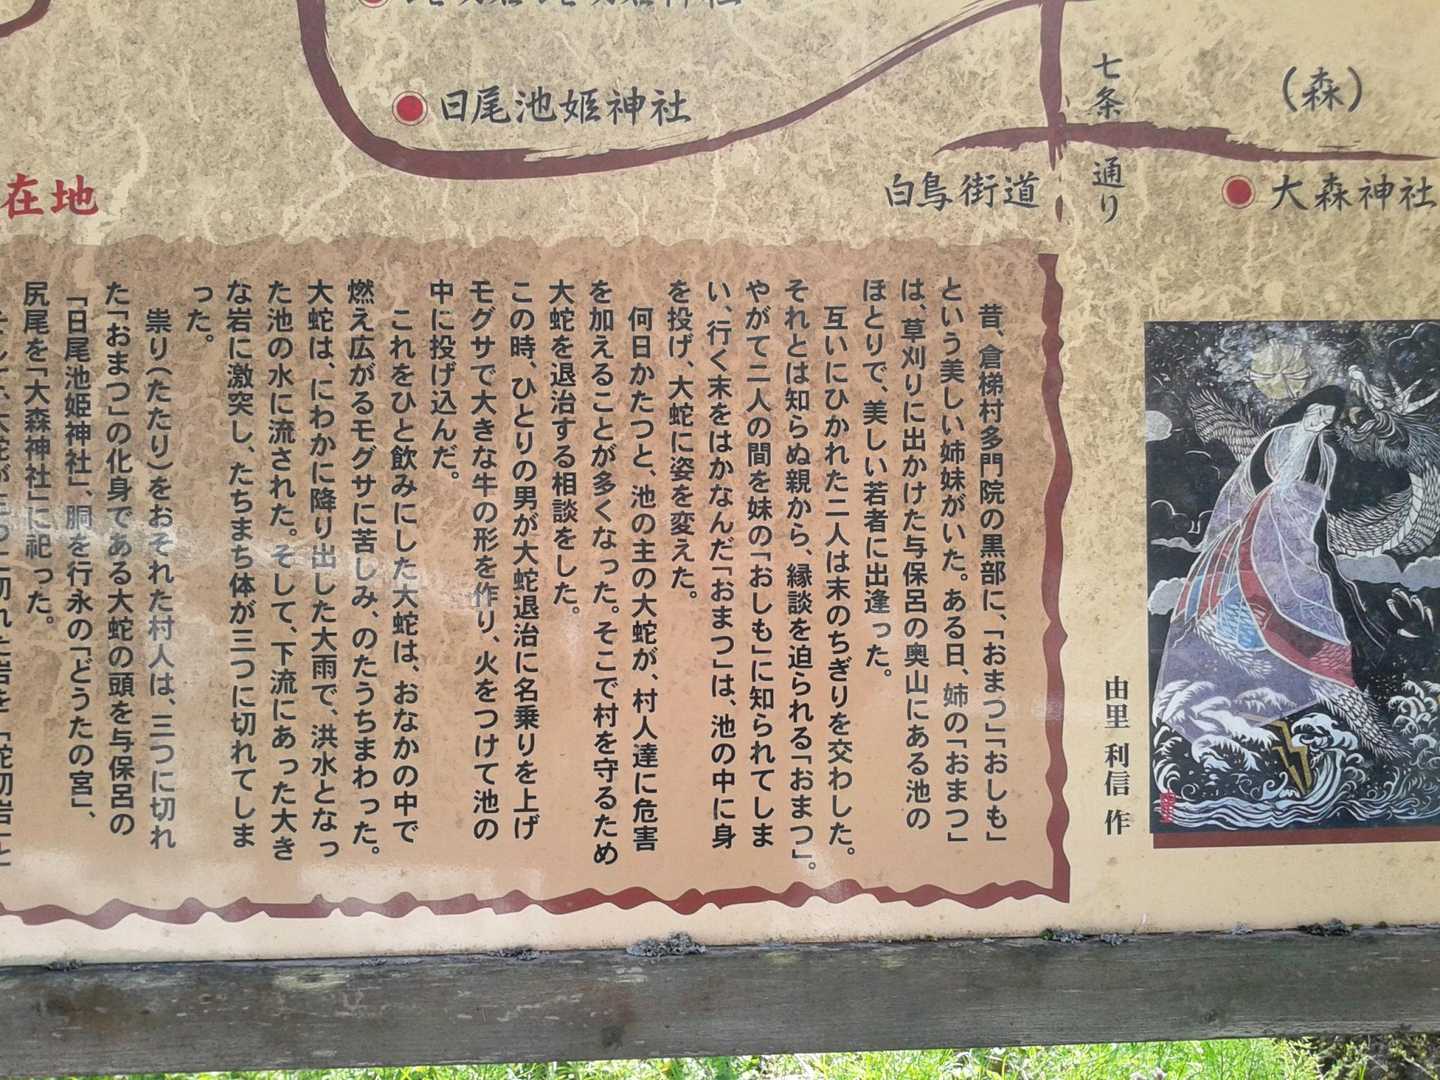 日尾池姫神社
七条
通り
(森)
白鳥街道
大森神社
在地
昔、倉梯村多門院の黒部に、「おまつ」「おしも」
という美しい姉妹がいた。ある日、姉の「おまつ」
は、草刈りに出かけた与保呂の奥山にある池の
ほとりで、美しい若者に出逢った。
互いにひかれた二人は末のちぎりを交わした。
それとは知らぬ親から、縁談を迫られる「おまつ」。
やがて二人の間を妹の「おしも」に知られてしま
い、行く末をはかなんだ「おまつ」は、池の中に身
を投げ、大蛇に姿を変えた。
何日かたつと、池の主の大蛇が、村人達に危害
を加えることが多くなった。そこで村を守るため
大蛇を退治する相談をした。
この時、ひとりの男が大蛇退治に名乗りを上げ
モグサで大きな牛の形を作り、火をつけて池の
中に投げ込んだ。
これをひと飲みにした大蛇は、おなかの中で
燃え広がるモグサに苦しみ、のたうちまわった。
大蛇は、にわかに降り出した大雨で、洪水となっ
た池の水に流された。そして、下流にあった大き
な岩に激突し、たちまち体が三つに切れてしま
った。
祟り(たたり)をおそれた村人は、三つに切れ
た「おまつ」の化身である大蛇の頭を与保呂の
「日尾池姫神社」、胴を行永の「どうたの宮」、
尻尾を「大森神社」に祀った。
由里 利信 作